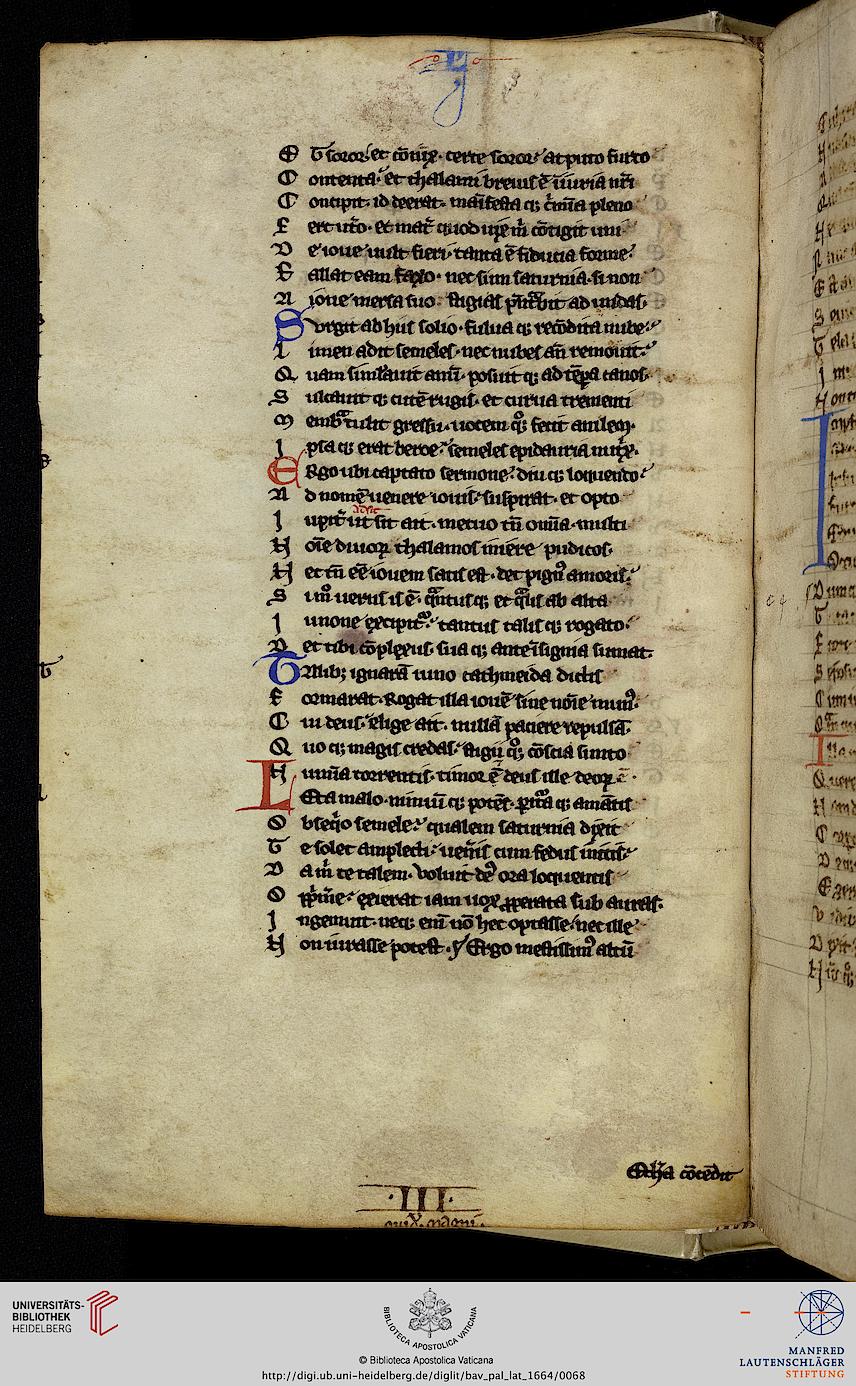 E t soror et cōiux. certe soror. at puto furto
C ontenta. et thalami breuis ē iniuria nr̄i
C oncipit. id deerat. manifesta qꝫ c̄mina pleno
F ert ut̄o. et mat̄ quod uix m̄ cōtigit uni
D e ioue uult fieri. tanta ē fiducia forme
F allat eam faxo. nec sum saturnia. si non
A ioue mersa suo stigias pen̄t̄bit ad undas.
S urgit ab hiis solio. fulua qꝫ recōdita nube
L imen adit semeles. nec nubes an̄ remouit.
Q uam simlauit anū. posuit qꝫ ad tēpa canos.
S ulcauit qꝫ cutē rugis. et curua trementi
M embra tulit gressu. uocem qꝫ fecit anilem.
I psa qꝫ erat beroe. semeles epidauria nutx̄.
E Rgo ubi captato sermone. diu qꝫ loquendo
A d nomē uenere iouis. suspirat. et opto
I upit̄ ut sit ait. metuo tn̄ om̄a. multi
N oīe diuoꝝ thalamos iniere pudicos.
N ec tn̄ eē iouem satis est. det pign᷒ amoris.
S i m᷒ uerus is ē. qntus qꝫ et qlis ab alta
I unone excipit᷒. tantus talis qꝫ rogato
D et tibi cōplexus. sua qꝫ ante īsignia sumat.
T Alibꝫ ignarā iuno cathmeida dictis
F ormarat. Rogat illa iouē sine noīe mun᷒.
C ui deus. elige ait. nullā paciere repulsā.
Q uo qꝫ magis credas. stigii qꝫ cōscia sunto
N umīa torrentis. timor ē deus ille deoꝝ ē.
L Eta malo. nimiū qꝫ potēs. pitura qꝫ amātis
O bseqio semele. qualem saturnia dixit
T e solet amplecti. ueñis cum fedus initis.
D a m̄ te talem. Voluit de᷒ ora loquentis
O pp̄me. exierat iam uox ꝓperata sub auras.
I ngemuit. neqꝫ em̄ nō hec optasse. nec ille
N on iurasse potest. Ergo mestissim᷒ altū
Ethera cōcēdit
.III.
UNIVERSITÄTS-
BIBLIOTHEK
HEIDELBERG
BIBLIOTECA APOSTOLICA VATICANA
© Biblioteca Apostolica Vaticana
http://digi.ub.uni-heidelberg.de/diglit/bav_pal_lat_1664/0068
MANFRED
LAUTENSCHLÄGER
STIFTUNG